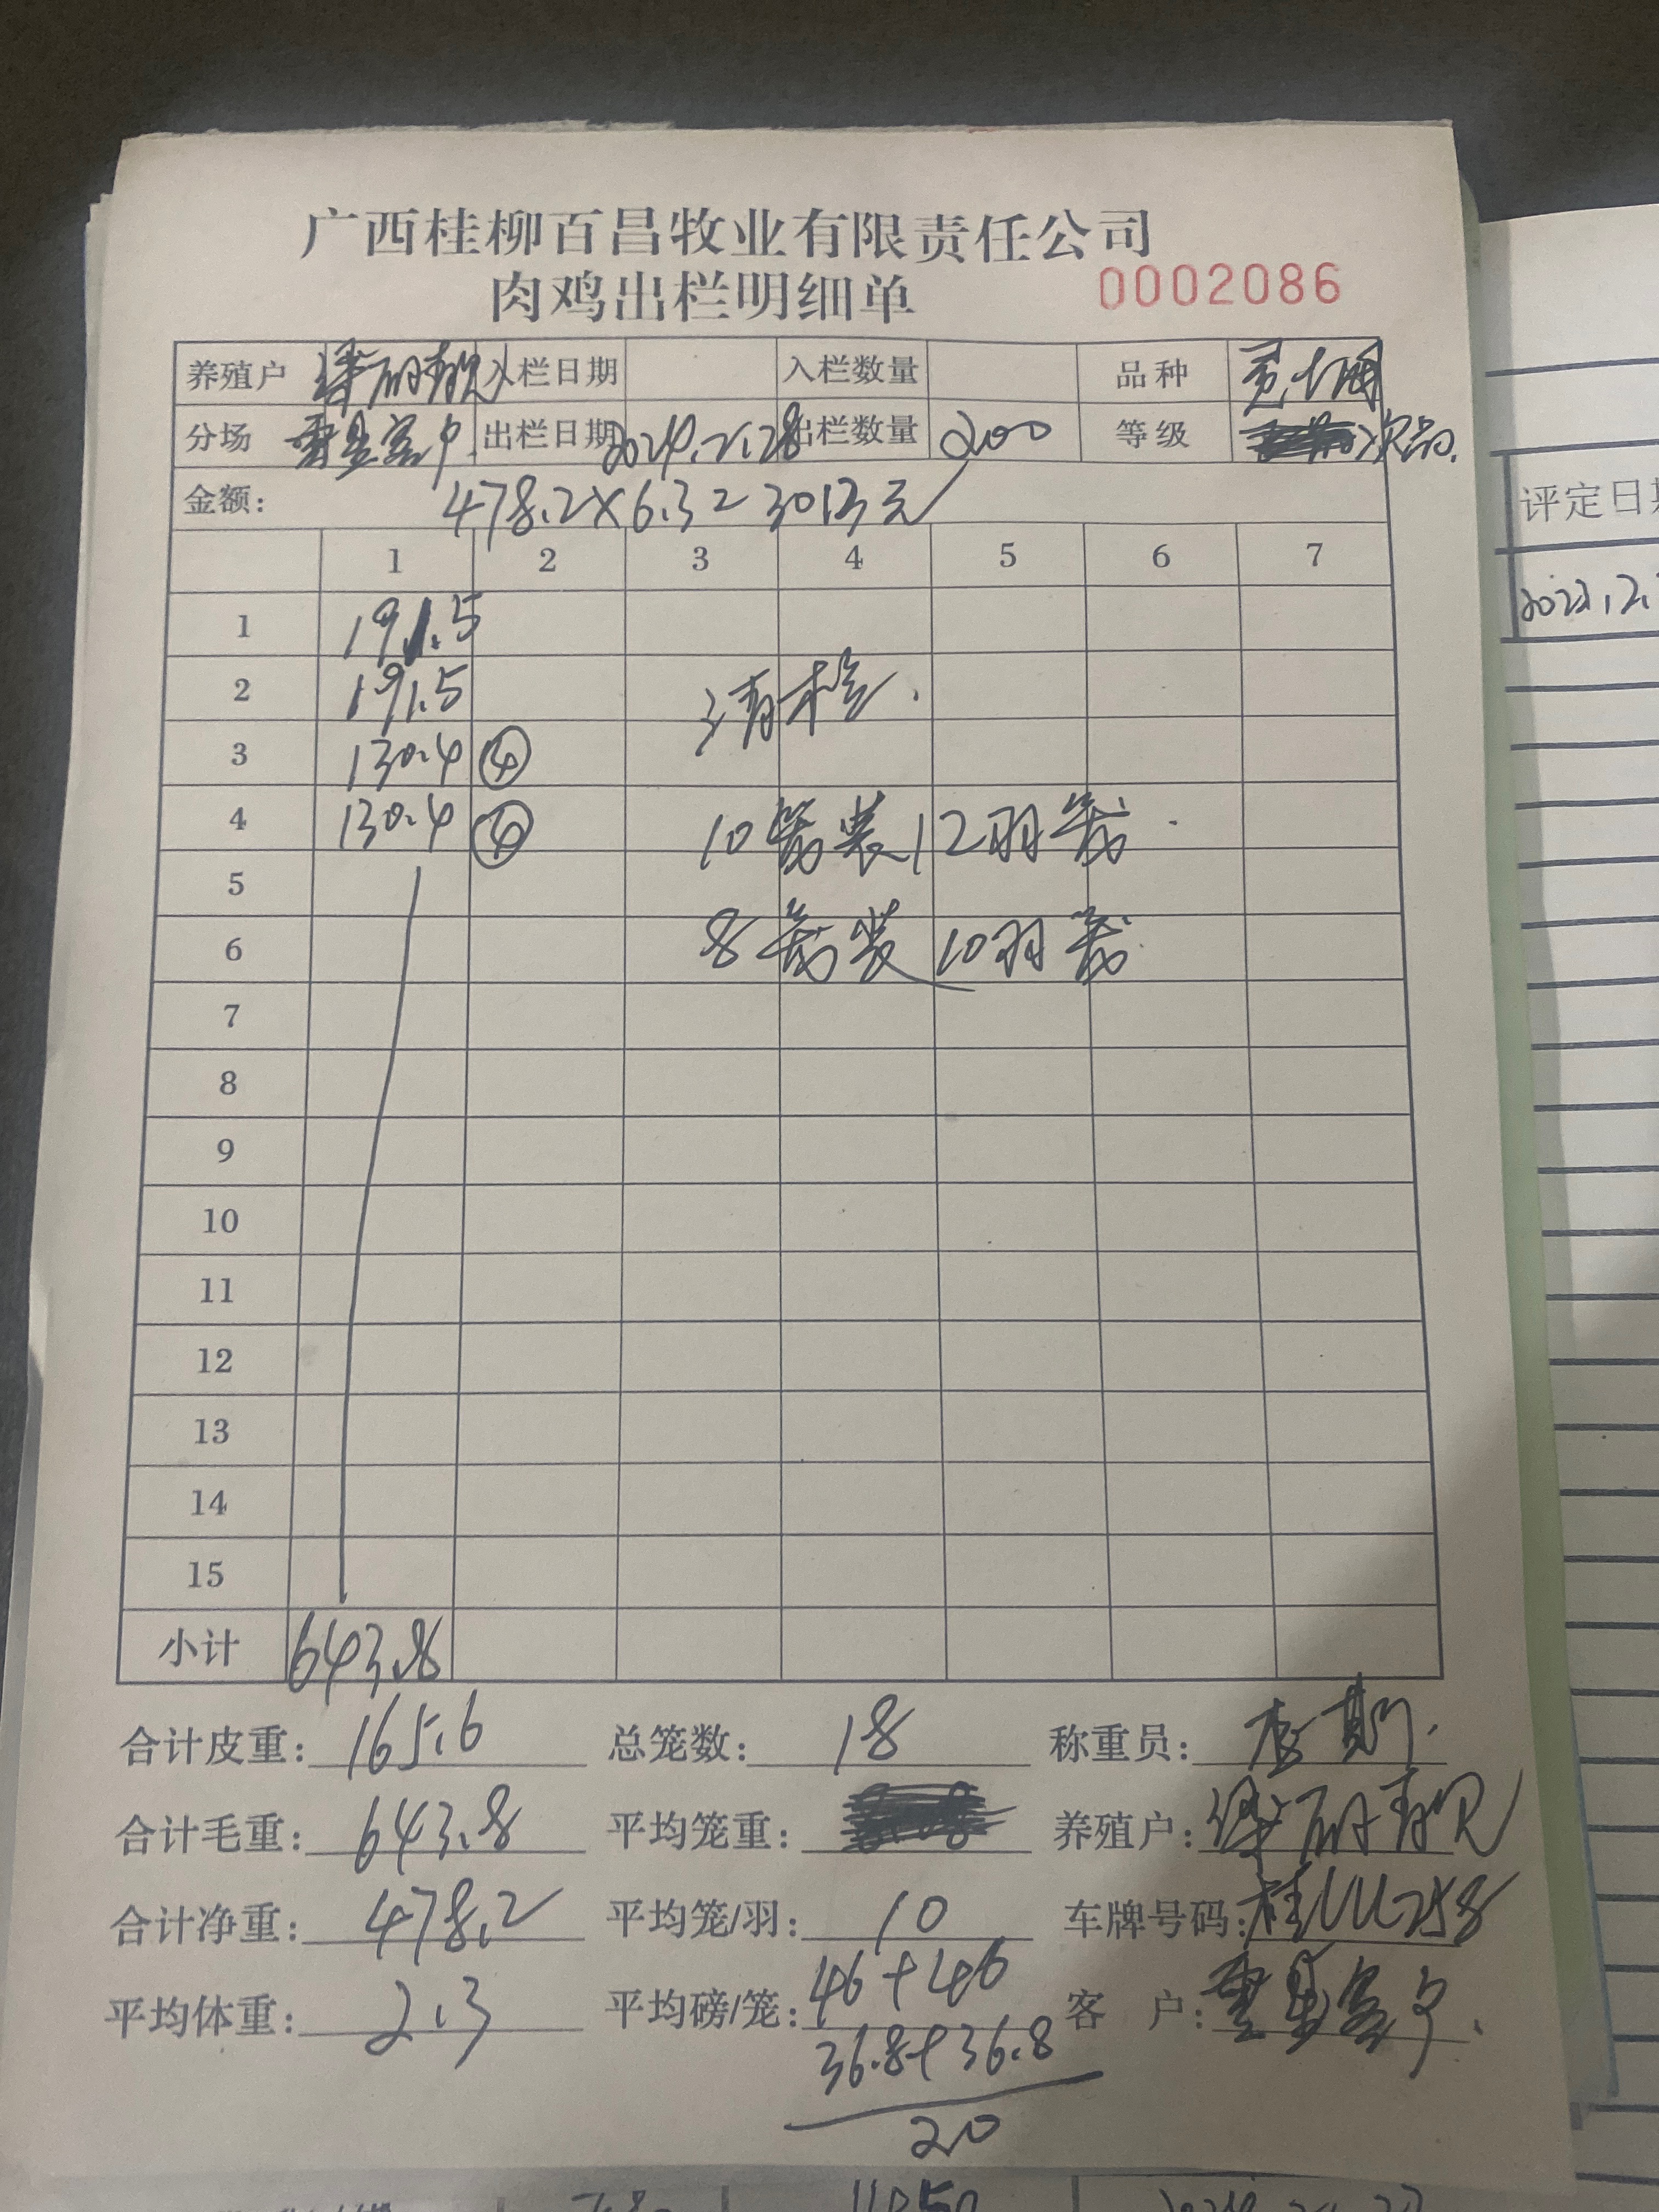 广西桂柳百昌牧业有限责任公司
肉鸡出栏明细单 0002086
养殖户 入栏日期 入栏数量 品种
分场 出栏日期 2024.2.28 出栏数量 200 等级 次品.
金额: 478.2×6.3= 3013元
1 2 3 4 5 6 7
1 191.5
2 191.5 清检.
3 130.4 ④
4 130.4 ④ 10笼装12羽笼.
5
6 8笼装10羽笼.
7
8
9
10
11
12
13
14
15
小计 643.8
合计皮重: 165.6 总笼数: 18 称重员:
合计毛重: 643.8 平均笼重: 养殖户:
合计净重: 478.2 平均笼/羽: 10 车牌号码:
平均体重: 2.3 平均磅/笼: 46+46 客 户:
36.8+36.8
20
评定日